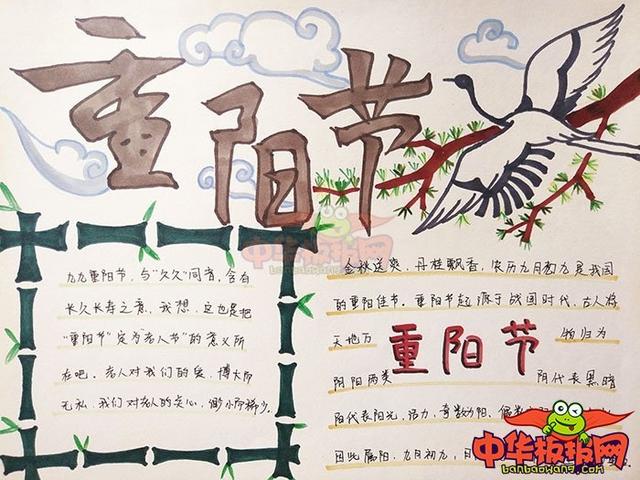 重阳节
九九重阳节，与“久久”同音，含有
长久长寿之意，我想，这也是把
“重阳节”定为“老人节”的意义所
在吧。老人对我们的爱，博大所
无私，我们对老人的关心，却小所稀少。
金秋送爽，丹桂飘香，农历九月初九是我国
的重阳佳节，重阳节起源于战国时代，古人将
天地万 物归为
重阳节
阴阳两类 阴代表黑暗
阳代表阳光，活力，奇数为阳，偶数
因此属阳，九月初九，日
中华板报网
中华板报网
banbaowang.com